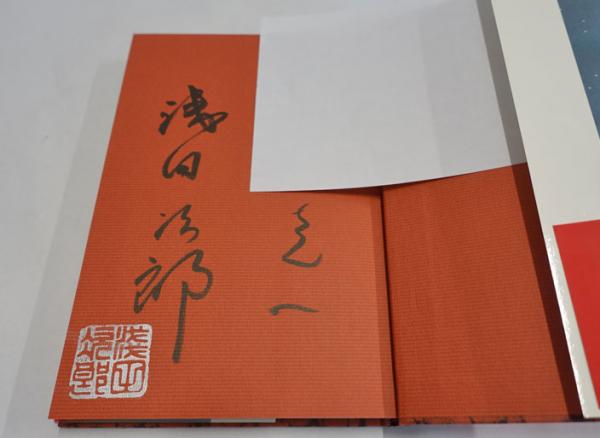 へ
浅田次郎
浅田
次郎